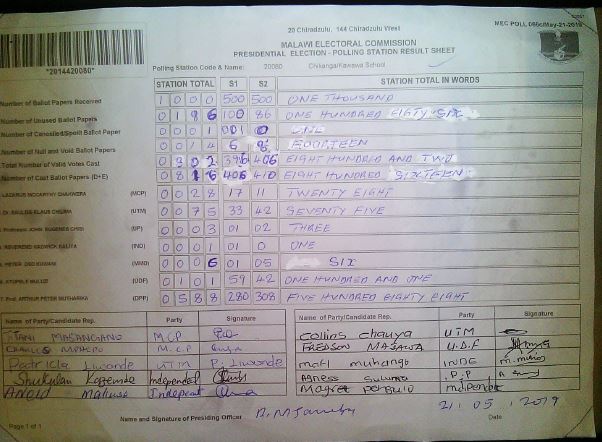 20 Chiradzulu, 144 Chiradzulu West
MEC POLL 066c/May-21-2019
MALAWI ELECTORAL COMMISSION
PRESIDENTIAL ELECTION - POLLING STATION RESULT SHEET
*2014420080*
Polling Station Code & Name: 20080 Chikanga/Kawawa School
STATION TOTAL S1 S2 STATION TOTAL IN WORDS
Number of Ballot Papers Received 1 0 0 0 500 500 ONE THOUSAND
Number of Unused Ballot Papers 0 1 8 6 100 86 ONE HUNDRED EIGHTY SIX
Number of Cancelled/Spoilt Ballot Paper 0 0 0 1 001 0 ONE
Number of Null and Void Ballot Papers 0 0 1 4 6 8 FOURTEEN
Total Number of Valid Votes Cast 0 302 396 406 EIGHT HUNDRED AND TWO
Number of Cast Ballot Papers (D+E) 0 8 1 6 406 410 EIGHT HUNDRED SIXTEEN
LAZARUS MCCARTHY CHAKWERA (MCP) 0 0 2 8 17 11 TWENTY EIGHT
Dr. SAULOS KLAUS CHILIMA (UTM) 0 0 7 5 33 42 SEVENTY FIVE
Professor JOHN EUGENES CHISI (UP) 0 0 0 3 01 02 THREE
REVEREND HADWICK KALIYA (IND) 0 0 0 1 01 0 ONE
PETER DSD KUWANI (MMD) 0 0 0 6 01 05 SIX
ATUPELE MULUZI (UDF) 0 1 0 1 59 42 ONE HUNDRED AND ONE
Prof. ARTHUR PETER MUTHARIKA (DPP) 0 5 8 8 280 308 FIVE HUNDRED EIGHTY EIGHT
Name of Party/Candidate Rep. Party Signature Name of Party/Candidate Rep. Party Signature
MASANGANO MCP Collins Chauya UTM
M.C.P FREDSON MASAWA U.D.F
Patricia Liwonde UTM P. Liwonde muhango INDE
Shukulan Independent Agness P.P
Independent Magret Independent
Name and Signature of Presiding Officer 21.05.2019
Date
Page 1 of 1